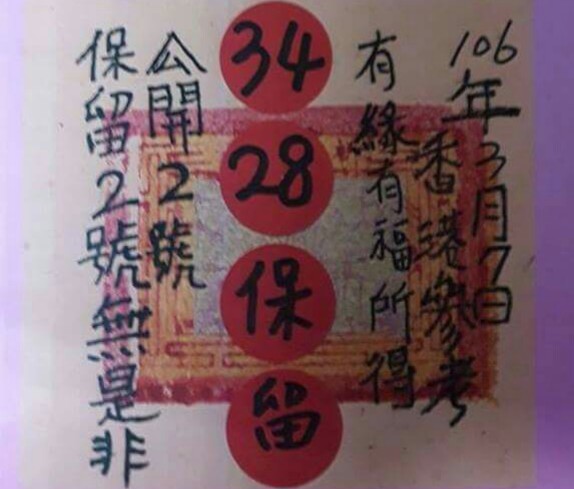 106年3月7日
香港參考
有緣有福所得
34
28
保
留
公開2號
保留2號無是非